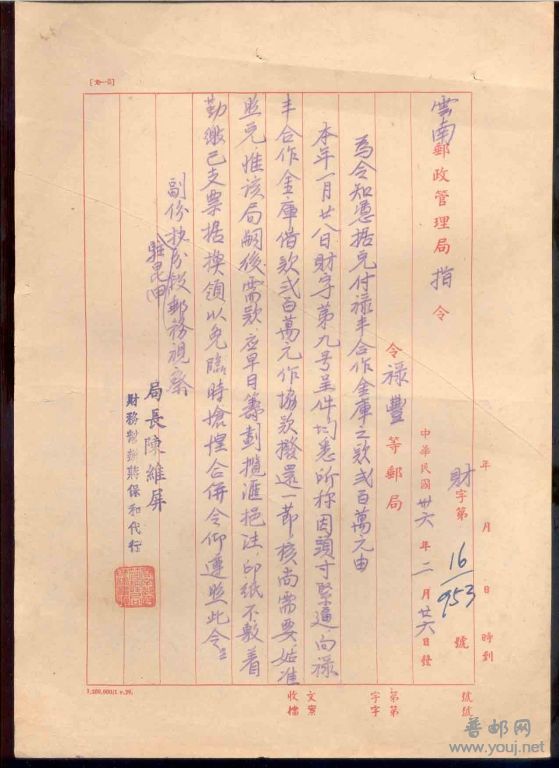 雲南郵政管理局指令
年 月 日 時到
財字第 16/953 號
中華民國卅六年二月廿六日發
令祿豐等郵局
為令知憑據兌付祿丰合作金庫之款弍百萬元由
本年一月廿八日財字第九号呈件均悉所称因頭寸緊逼向祿
丰合作金庫借款弍百萬元作協款撥還一節核尚需要姑准
照兌惟該局嗣後需款應早日籌劃攬匯挹注印紙不敷着
勤繳已支票据換領以免臨時搶惶合併令仰遵照此令
副份抄
段郵務視察
駐昆
局長陳維屏
財務幫辦蔣保和代行
號號
第第
字字
文案
收檔
普邮网
www.youj.net